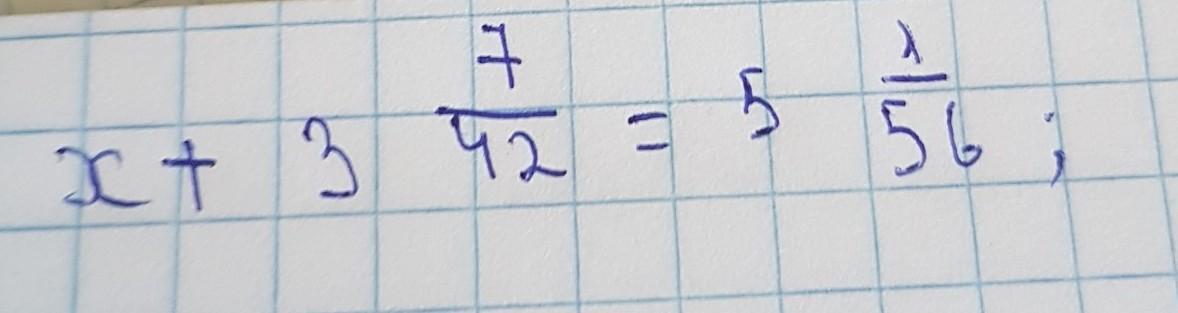 x + 3 7/42 = 5 1/56 ;